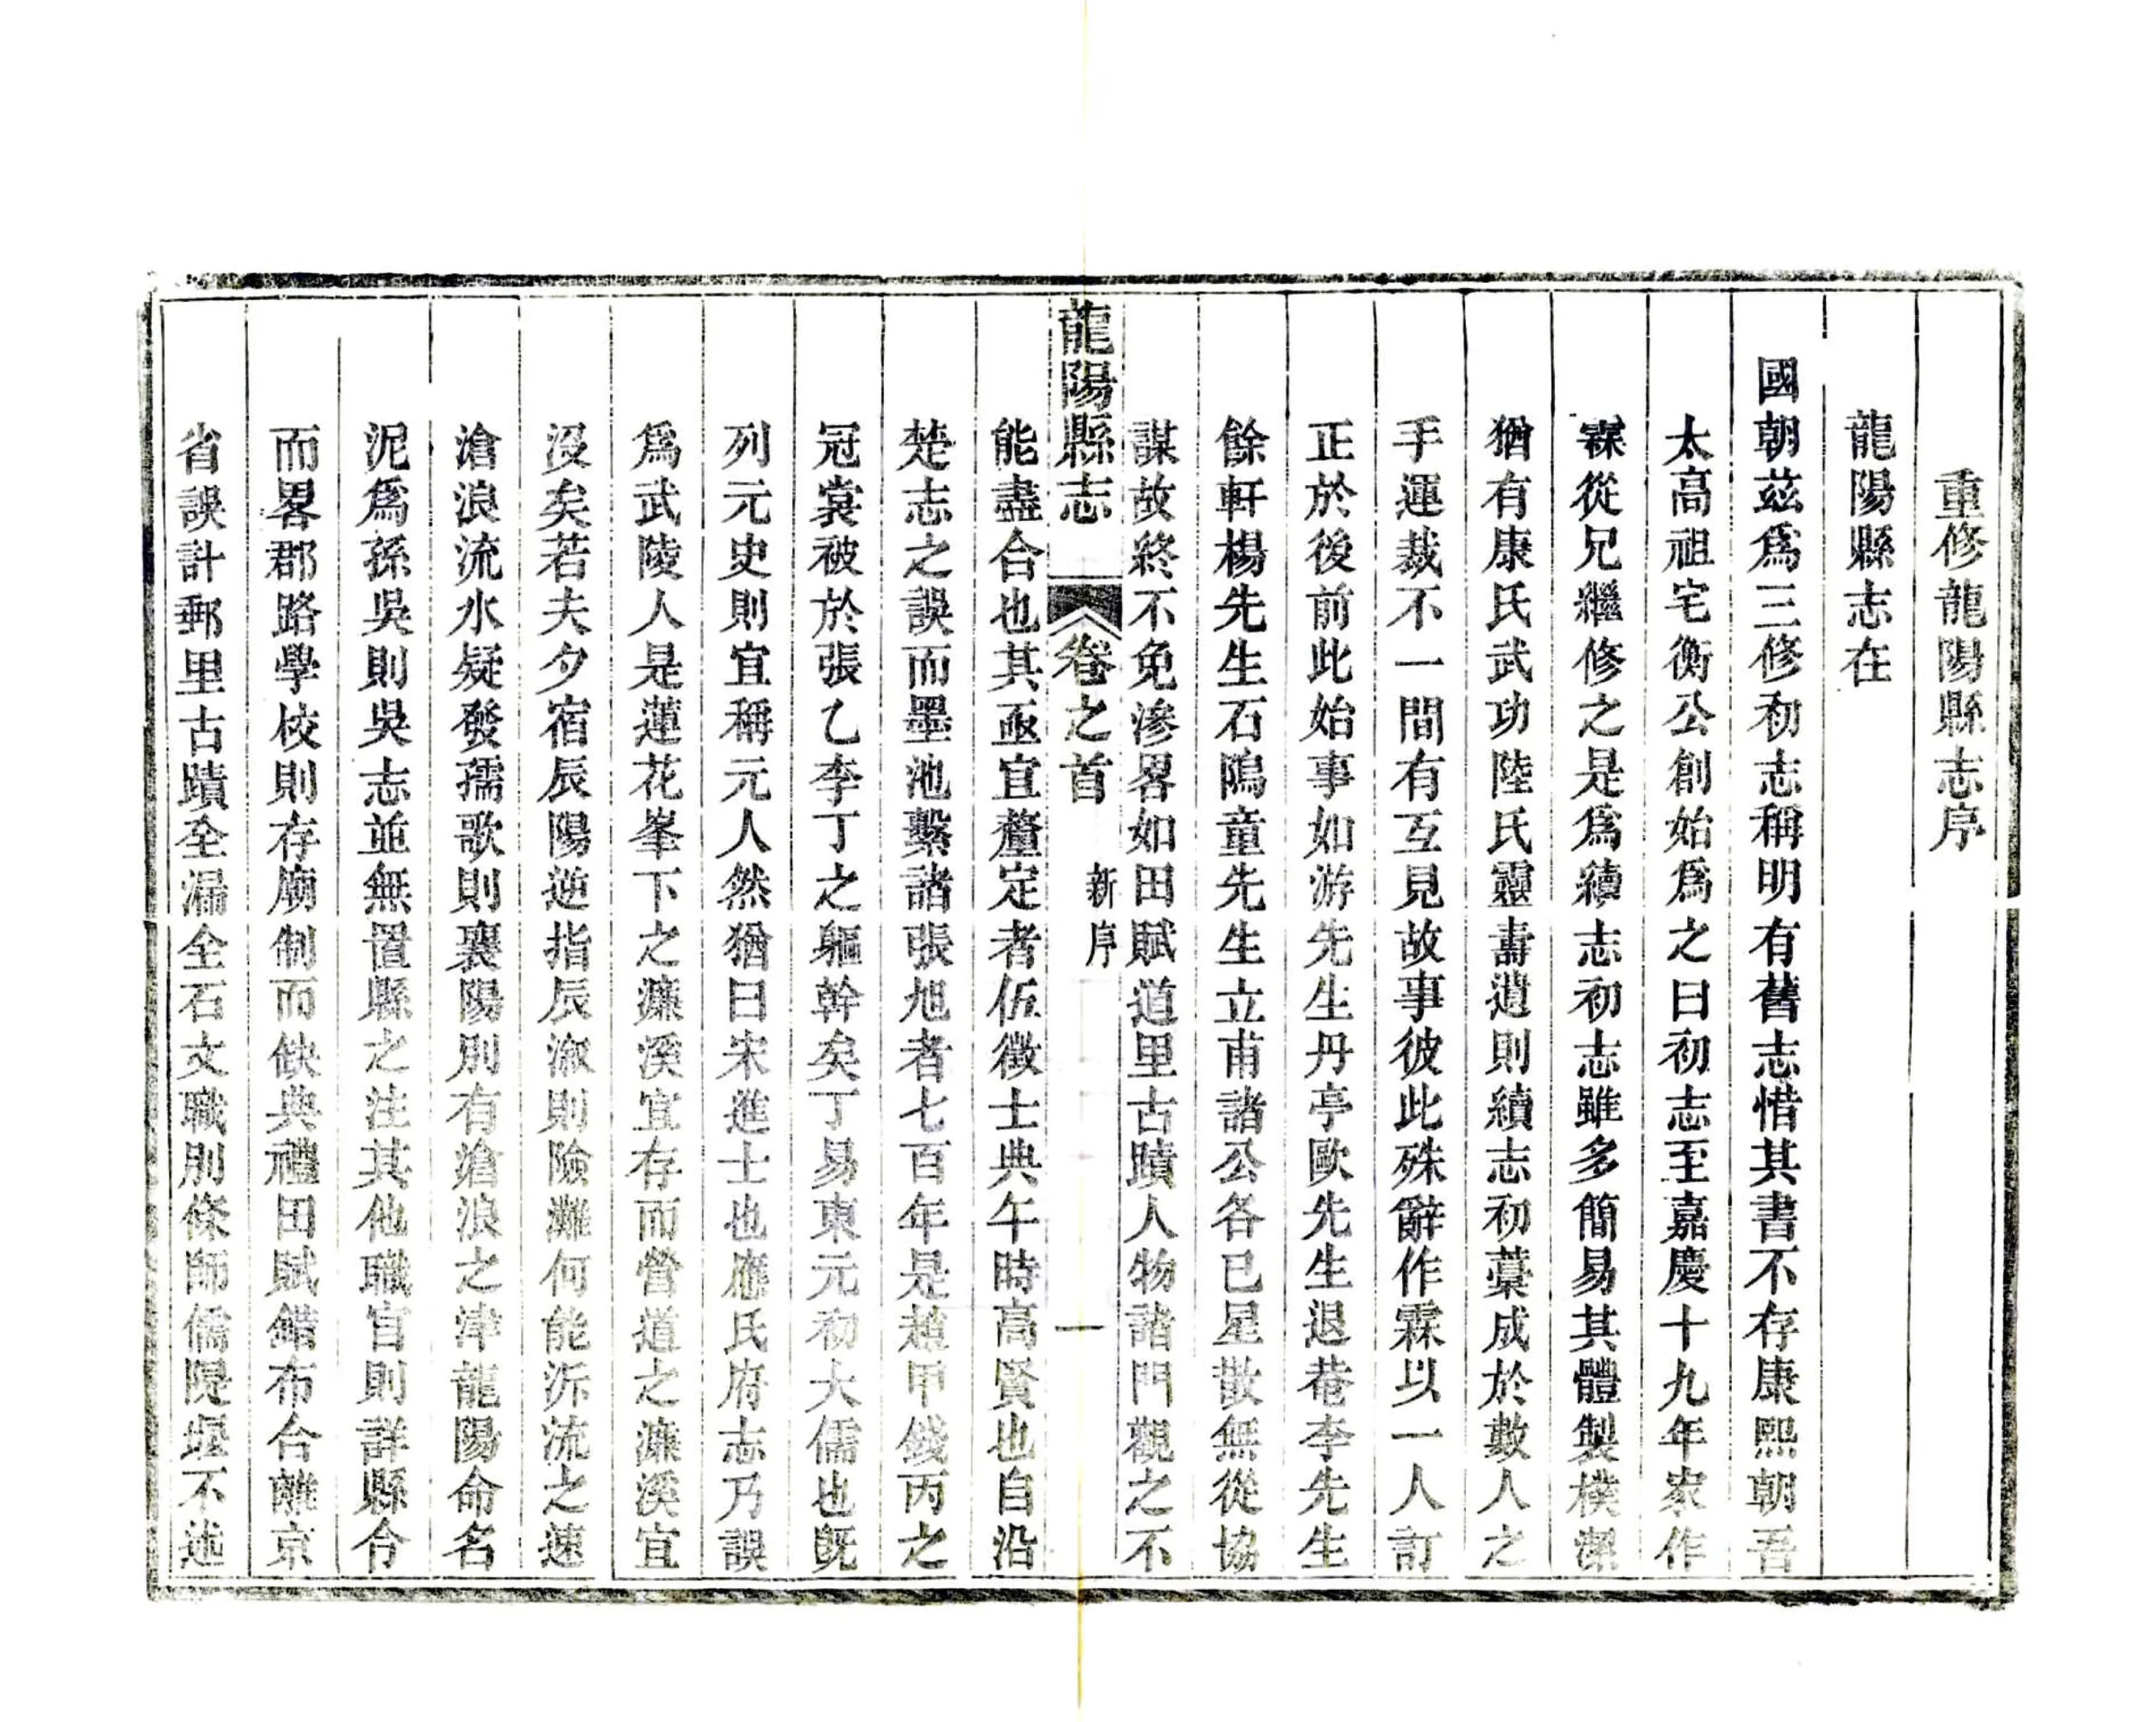 重修龍陽縣志序
龍陽縣志在
國朝茲爲三修初志稱明有舊志惜其書不存康熙朝吾
太高祖宅衡公創始爲之曰初志至嘉慶十九年家作
霖從兄繼修之是爲續志初志雖多簡易其體製樸潔
猶有康氏武功陸氏靈壽遺則續志初藳成於數人之
手運裁不一間有互見故事彼此殊辭作霖以一人訂
正於後前此始事如游先生丹亭歐先生退菴李先生
餘軒楊先生石隖童先生立甫諸公各已星散無從協
謀故終不免滲畧如田賦道里古蹟人物諸門觀之不
龍陽縣志 卷之首 新序 一
能盡合也其亟宜釐定者伍徵士典午時高賢也自沿
楚志之誤而墨池繫諸張旭者七百年是趙甲錢丙之
冠裳被於張乙李丁之軀幹矣丁易東元初大儒也旣
列元史則宜稱元人然猶曰宋進士也應氏府志乃誤
爲武陵人是蓮花峯下之濂溪宜存而營道之濂溪宜
沒矣若夫夕宿辰陽逆指辰溆則險灘何能泝流之速
滄浪流水疑發孺歌則襄陽別有滄浪之津龍陽命名
泥爲孫吳則吳志並無置縣之注其他職官則詳縣令
而畧郡路學校則存廟制而缺典禮田賦錯布合離京
省誤計郵里古蹟全漏全石文職別條師儒隄堰不述